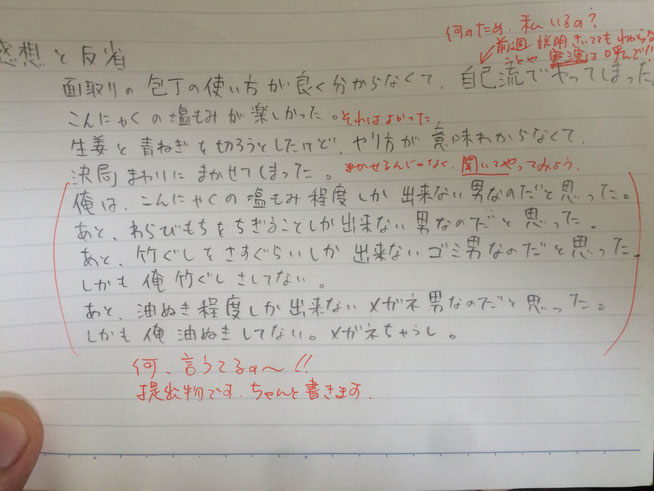 何のため、私いるの?
前回 説明きいててもわからな
ことや 実演は呼んで!!
感想と反省
面取りの包丁の使い方が良く分からなくて、自己流でやってしまった。
こんにゃくの塩もみが楽しかった。それはよかった。
生姜と青ねぎを切ろうとしたけど、やり方が意味わからなくて、
決局まわりにまかせてしまった。まかせるんじゃなく、聞いてやってみよう。
俺は、こんにゃくの塩もみ程度しか出来ない男なのだと思った。
あと、わらびもちをちぎることしか出来ない男なのだと思った。
あと、竹ぐしをさすぐらいしか出来ないゴミ男なのだと思った。
しかも俺竹ぐしさしてない。
あと、油ぬき程度しか出来ないメガネ男なのだと思った。
しかも俺油ぬきしてない。メガネちゃうし。
何、言うてるの〜!!
提出物です。ちゃんと書きます。